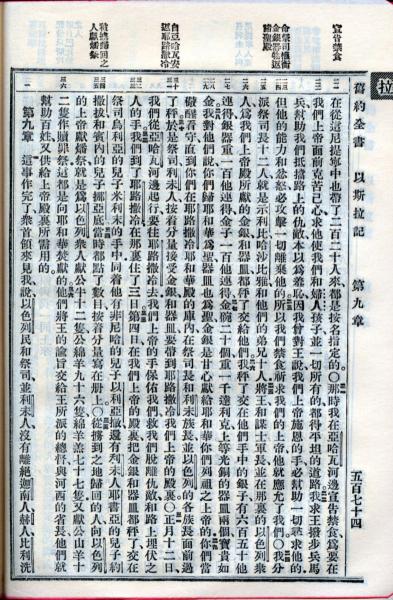 拉
舊約全書 以斯拉記 第九章 五百七十四
宣告禁食
命祭司權衡
金銀器皿送
諸聖殿
自亞哈瓦安
返耶路撒冷
被擄歸回之
人獻燔祭
在從這尼提寧中也帶了二百二十人來都是按名指定的○那時我在亞哈瓦河邊宣告禁食爲要在
我們上帝面前克苦己心求他使我們和婦人孩子並一切所有的都得平坦的道路我求王撥步兵馬
兵幫助我們抵擋路上的仇敵本以爲羞恥因我曾對王說我們上帝施恩的手必幫助一切尋求他的
但他的能力和忿怒必攻擊一切離棄他的所以我們禁食祈求我們的上帝他就應允了我們○我分
派祭司長十二人就是示利比哈沙比雅和他們的弟兄十人將王和謀士軍長並在那裏的以色列衆
人爲我們上帝殿所獻的金銀和器皿都秤了交給他們我秤了交在他們手中的銀子有六百五十他
連得銀器重一百他連得金子一百他連得金碗二十個重一千達利克上等光銅的器皿兩個寶貴如
金我對他們說你們歸耶和華爲聖器皿也爲聖金銀是甘心獻給耶和華你們列祖之上帝的你們當
儆醒看守直到你們在耶路撒冷耶和華殿的庫內在祭司長和利未族長並以色列的各族長面前過
了秤於是祭司利未人按着分量接受金銀和器皿要帶到耶路撒冷我們上帝的殿裏○正月十二日
我們從亞哈瓦河邊起行要往耶路撒冷去我們上帝的手保佑我們救我們脫離仇敵和路上埋伏之
人的手我們到了耶路撒冷在那裏住了三日第四日在我們上帝的殿裏把金銀和器皿都秤了交在
祭司烏利亞的兒子米利末的手中同着他有非尼哈的兒子以利亞撒還有利未人耶書亞的兒子約
撒拔和賓內的兒子挪亞底當時都點了數目按着分量寫在册上○從擄到之地歸回的人向以色列
的上帝獻燔祭就是爲以色列衆人獻公牛十二隻公綿羊九十六隻綿羊羔七十七隻又獻公山羊十
二隻作贖罪祭這都是向耶和華焚獻的他們將王的諭旨交給王所派的總督與河西的省長他們就
幫助百姓又供給上帝殿裏所需用的
第九章 這事作完了衆首領來見我說以色列民和祭司並利未人沒有離絕迦南人赫人比利洗